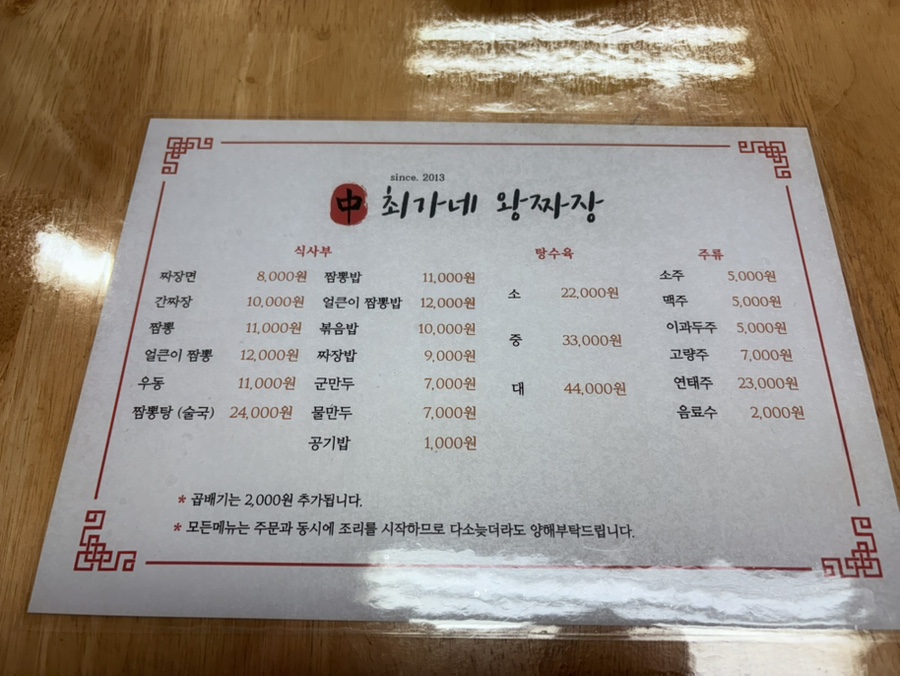 since. 2013
中 최가네 왕짜장
식사부
짜장면 8,000원
간짜장 10,000원
짬뽕 11,000원
얼큰이 짬뽕 12,000원
우동 11,000원
짬뽕탕 (술국) 24,000원
짬뽕밥 11,000원
얼큰이 짬뽕밥 12,000원
볶음밥 10,000원
짜장밥 9,000원
군만두 7,000원
물만두 7,000원
공기밥 1,000원
탕수육
소 22,000원
중 33,000원
대 44,000원
주류
소주 5,000원
맥주 5,000원
이과두주 5,000원
고량주 7,000원
연태주 23,000원
음료수 2,000원
* 곱배기는 2,000원 추가됩니다.
* 모든메뉴는 주문과 동시에 조리를 시작하므로 다소늦더라도 양해부탁드립니다.